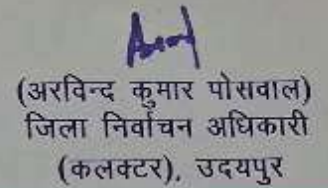 (अरविन्द कुमार पोसवाल)
जिला निर्वाचन अधिकारी
(कलक्टर), उदयपुर